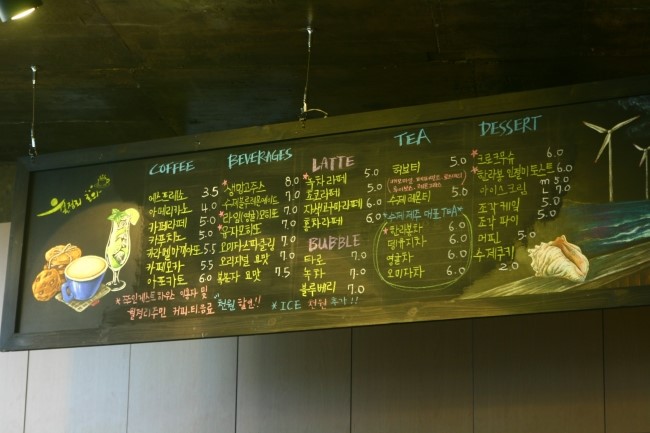 COFFEE
에스프레소 3.5
아메리카노 4.0
카페라떼 5.0
카푸치노 5.0
카라멜마끼아또 5.5
카페모카 5.5
아포가토 6.0
BEVERAGES
생망고주스 8.0
수제블루레몬에이드 7.0
라임(애플)모히또 7.0
유자모히또 7.0
오미자스파클링 7.0
오리지널 요맛 7.0
복분자 요맛 7.5
LATTE
녹차라떼 5.0
초코라떼 5.0
자색고구마라떼 6.0
홍차라떼 6.0
BUBBLE
타로 7.0
녹차 7.0
블루베리 7.0
TEA
허브티 5.0
수제 레몬티 5.0
*수제 제주 대표 TEA*
한라봉차 6.0
댕유지차 6.0
영귤차 6.0
오미자차 6.0
DESSERT
크로크무슈 6.0
한라봉 인절미토스트 6.0
아이스크림 M 5.0
L 7.0
조각 케잌 5.0
조각 파이 5.0
머핀 5.0
수제쿠키 2.0
월정리주민 커피.티.음료 천원 할인!!
* ICE 천원 추가!!